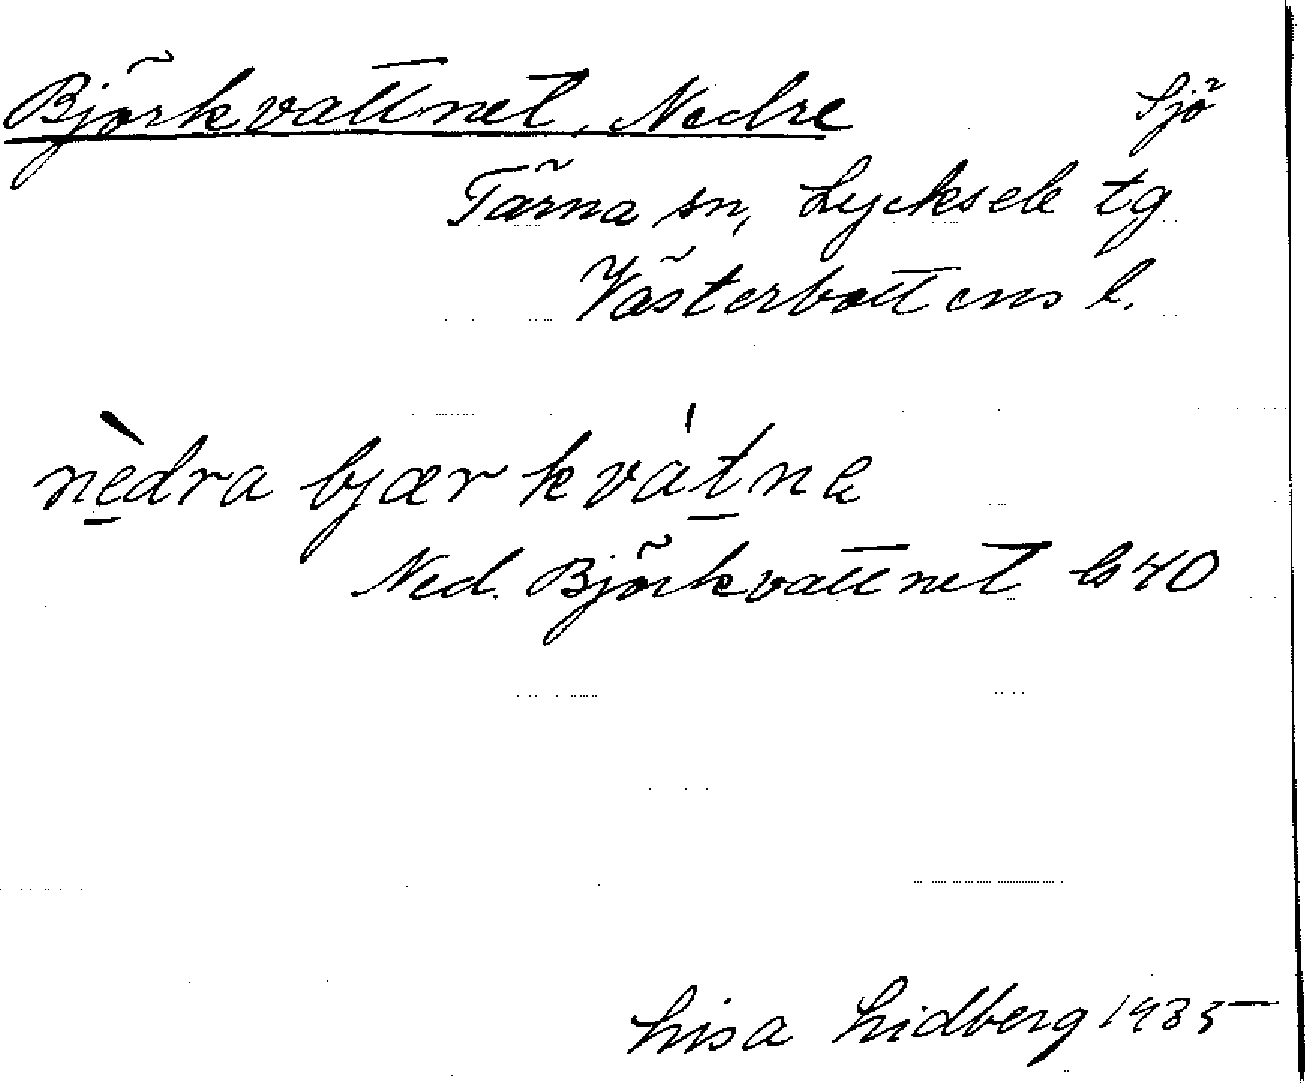 Björkvattnet, Nedre Sjö
Tärna sn, Lycksele tg
Västerbottens l.
nèdra bjærkvátnę
Ned. Björkvattnet 40
Lisa Lidberg 1935